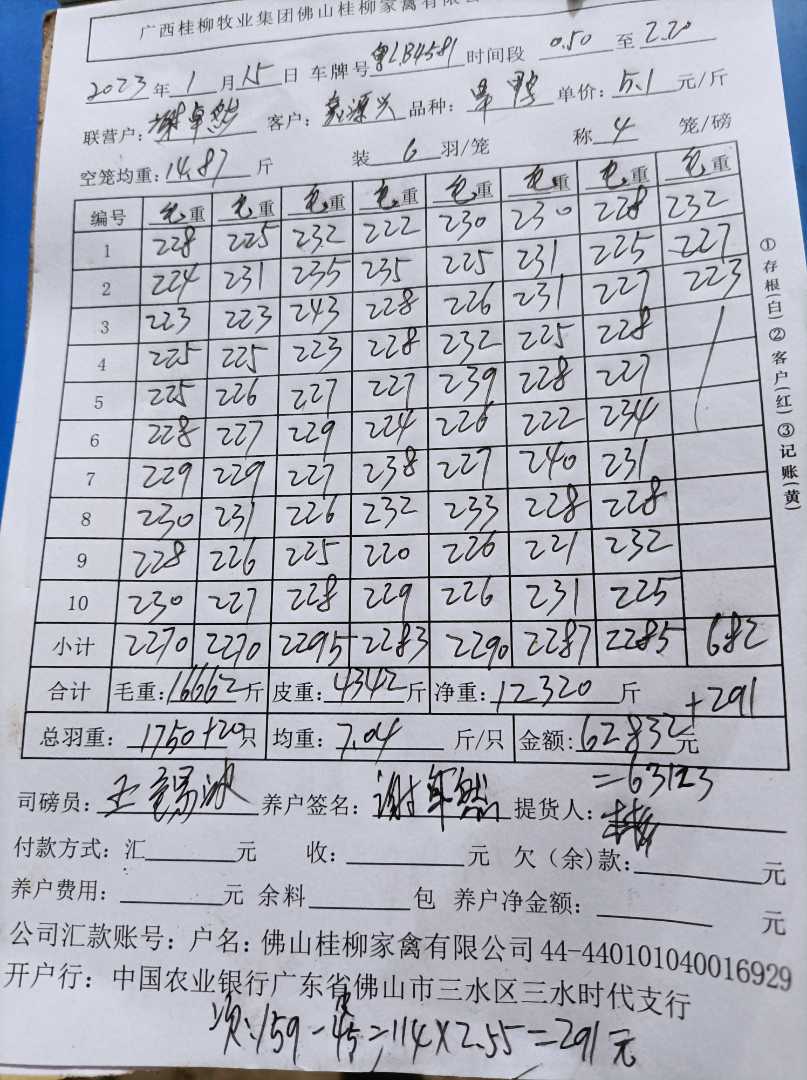 广西桂柳牧业集团佛山桂柳家禽有限公
2023年1月15日 车牌号 粤LB4581 时间段 0.50 至 2.20
联营户: 谢卓然 客户: 源兴 品种: 单价: 5.1 元/斤
空笼均重: 14.87 斤 装 6 羽/笼 称 4 笼/磅
编号 毛重 毛重 毛重 毛重 毛重 毛重 毛重 毛重
1 228 225 232 222 230 230 228 232
2 224 231 235 235 225 231 225 227
3 223 223 243 228 226 231 227 223
4 225 225 223 228 232 225 228
5 225 226 227 227 239 228 227
6 228 227 229 224 226 222 234
7 229 229 227 238 227 240 231
8 230 231 226 232 233 228 228
9 228 226 225 220 226 221 232
10 230 227 228 229 226 231 225
小计 2270 2270 2295 2283 2290 2287 2285 682
合计 毛重: 16662 斤 皮重: 4342 斤 净重: 12320 斤 +291
总羽重: 1750+20 只 均重: 7.04 斤/只 金额: 62832 元
=63123
司磅员: 王 冰 养户签名: 谢卓然 提货人:
付款方式: 汇 元 收: 元 欠(余)款: 元
养户费用: 元 余料 包 养户净金额: 元
公司汇款账号: 户名: 佛山桂柳家禽有限公司 44-440101040016929
开户行: 中国农业银行广东省佛山市三水区三水时代支行
次:159-皮45=114×2.55=291元
①存根(白)②客户(红)③记账(黄)